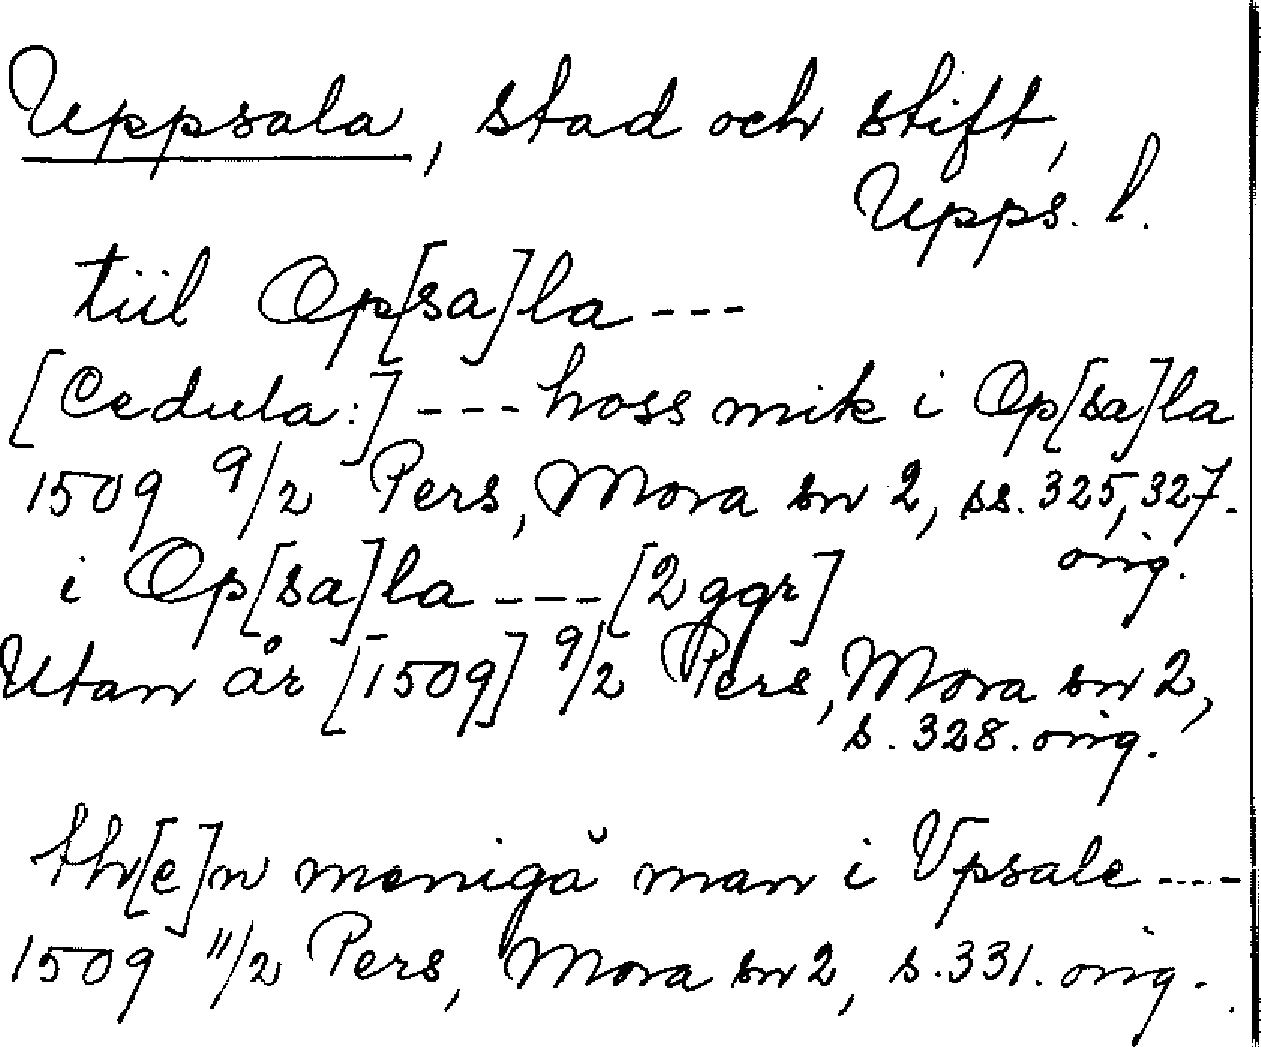 Uppsala, stad och stift,
Upps. l.
tiil Op[sa]la ---
[Cedula:] --- hoss mik i Op[sa]la
1509 9/2 Pers, Mora sn 2, ss. 325, 327.
orig.
i Op[sa]la --- [2 ggr]
Utan år [1509] 9/2 Pers, Mora sn 2,
s. 328. orig.
th[e]n menigă man i Vpsale ---
1509 11/2 Pers, Mora sn 2, s. 331. orig.